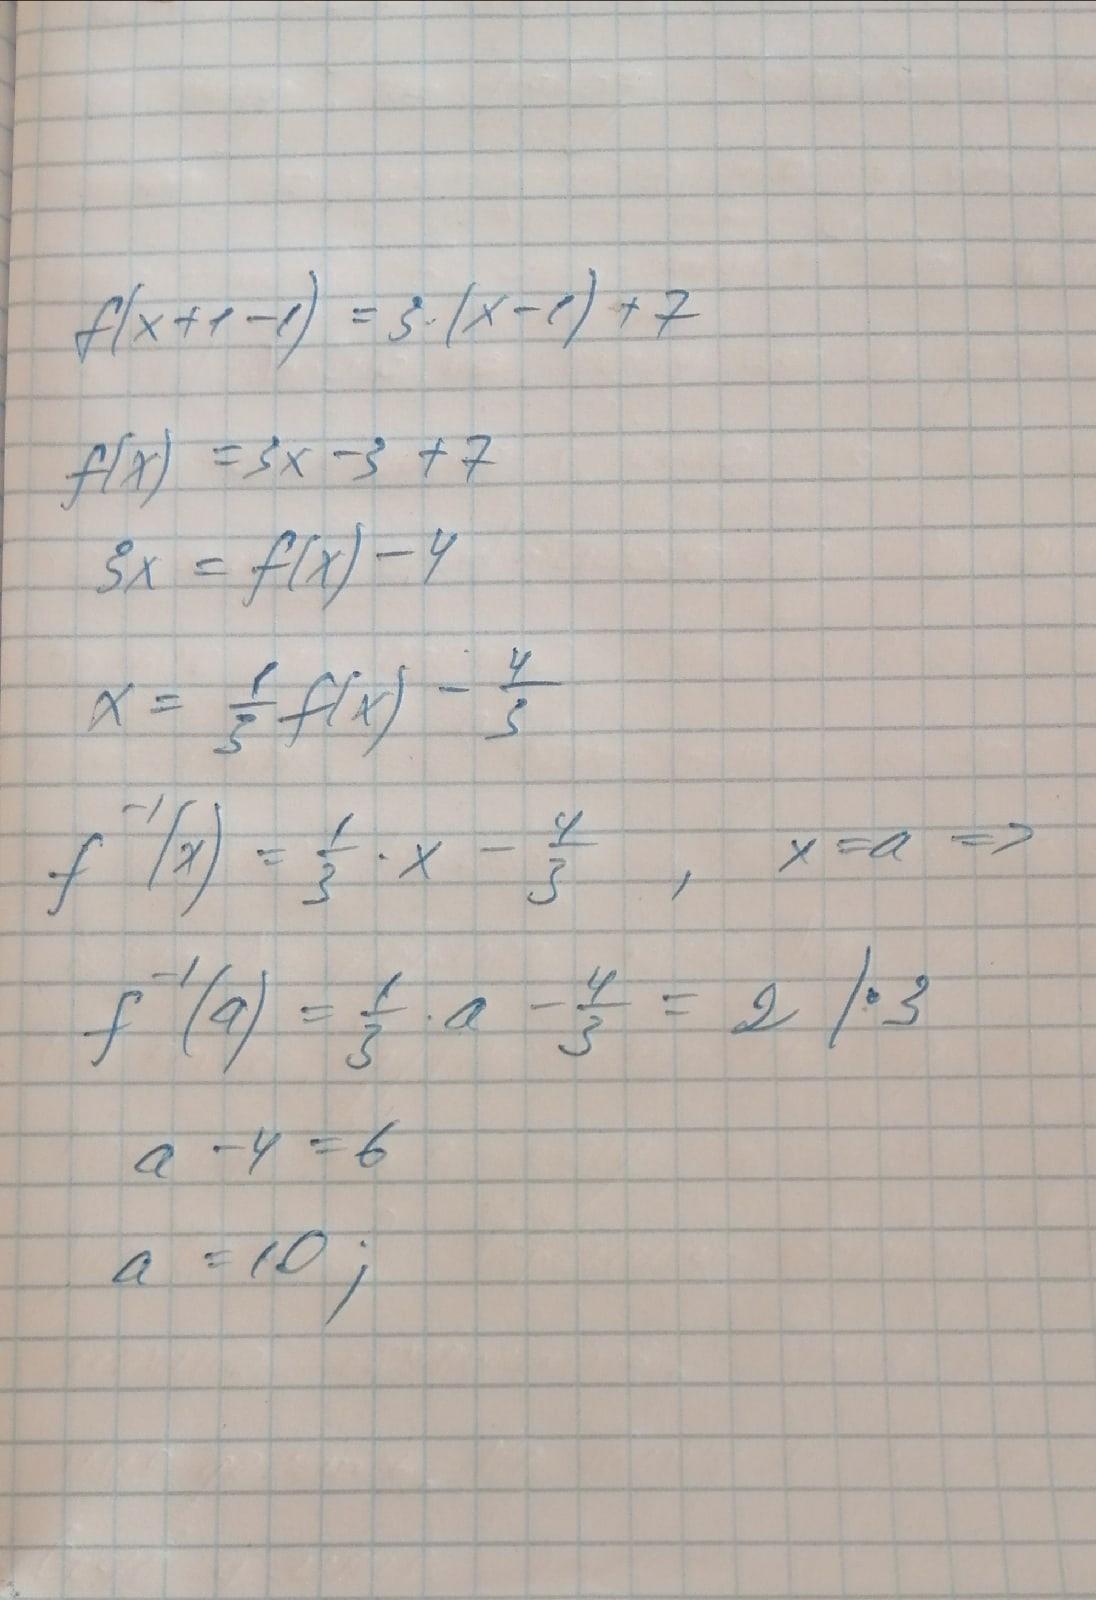 f(x+1-1) = 3·(x-1)+7
f(x) = 3x-3+7
3x = f(x)-4
x = 1/3 f(x) - 4/3
f⁻¹(x) = 1/3 · x - 4/3 , x=a =>
f⁻¹(a) = 1/3 · a - 4/3 = 2 /·3
a-4=6
a=10;